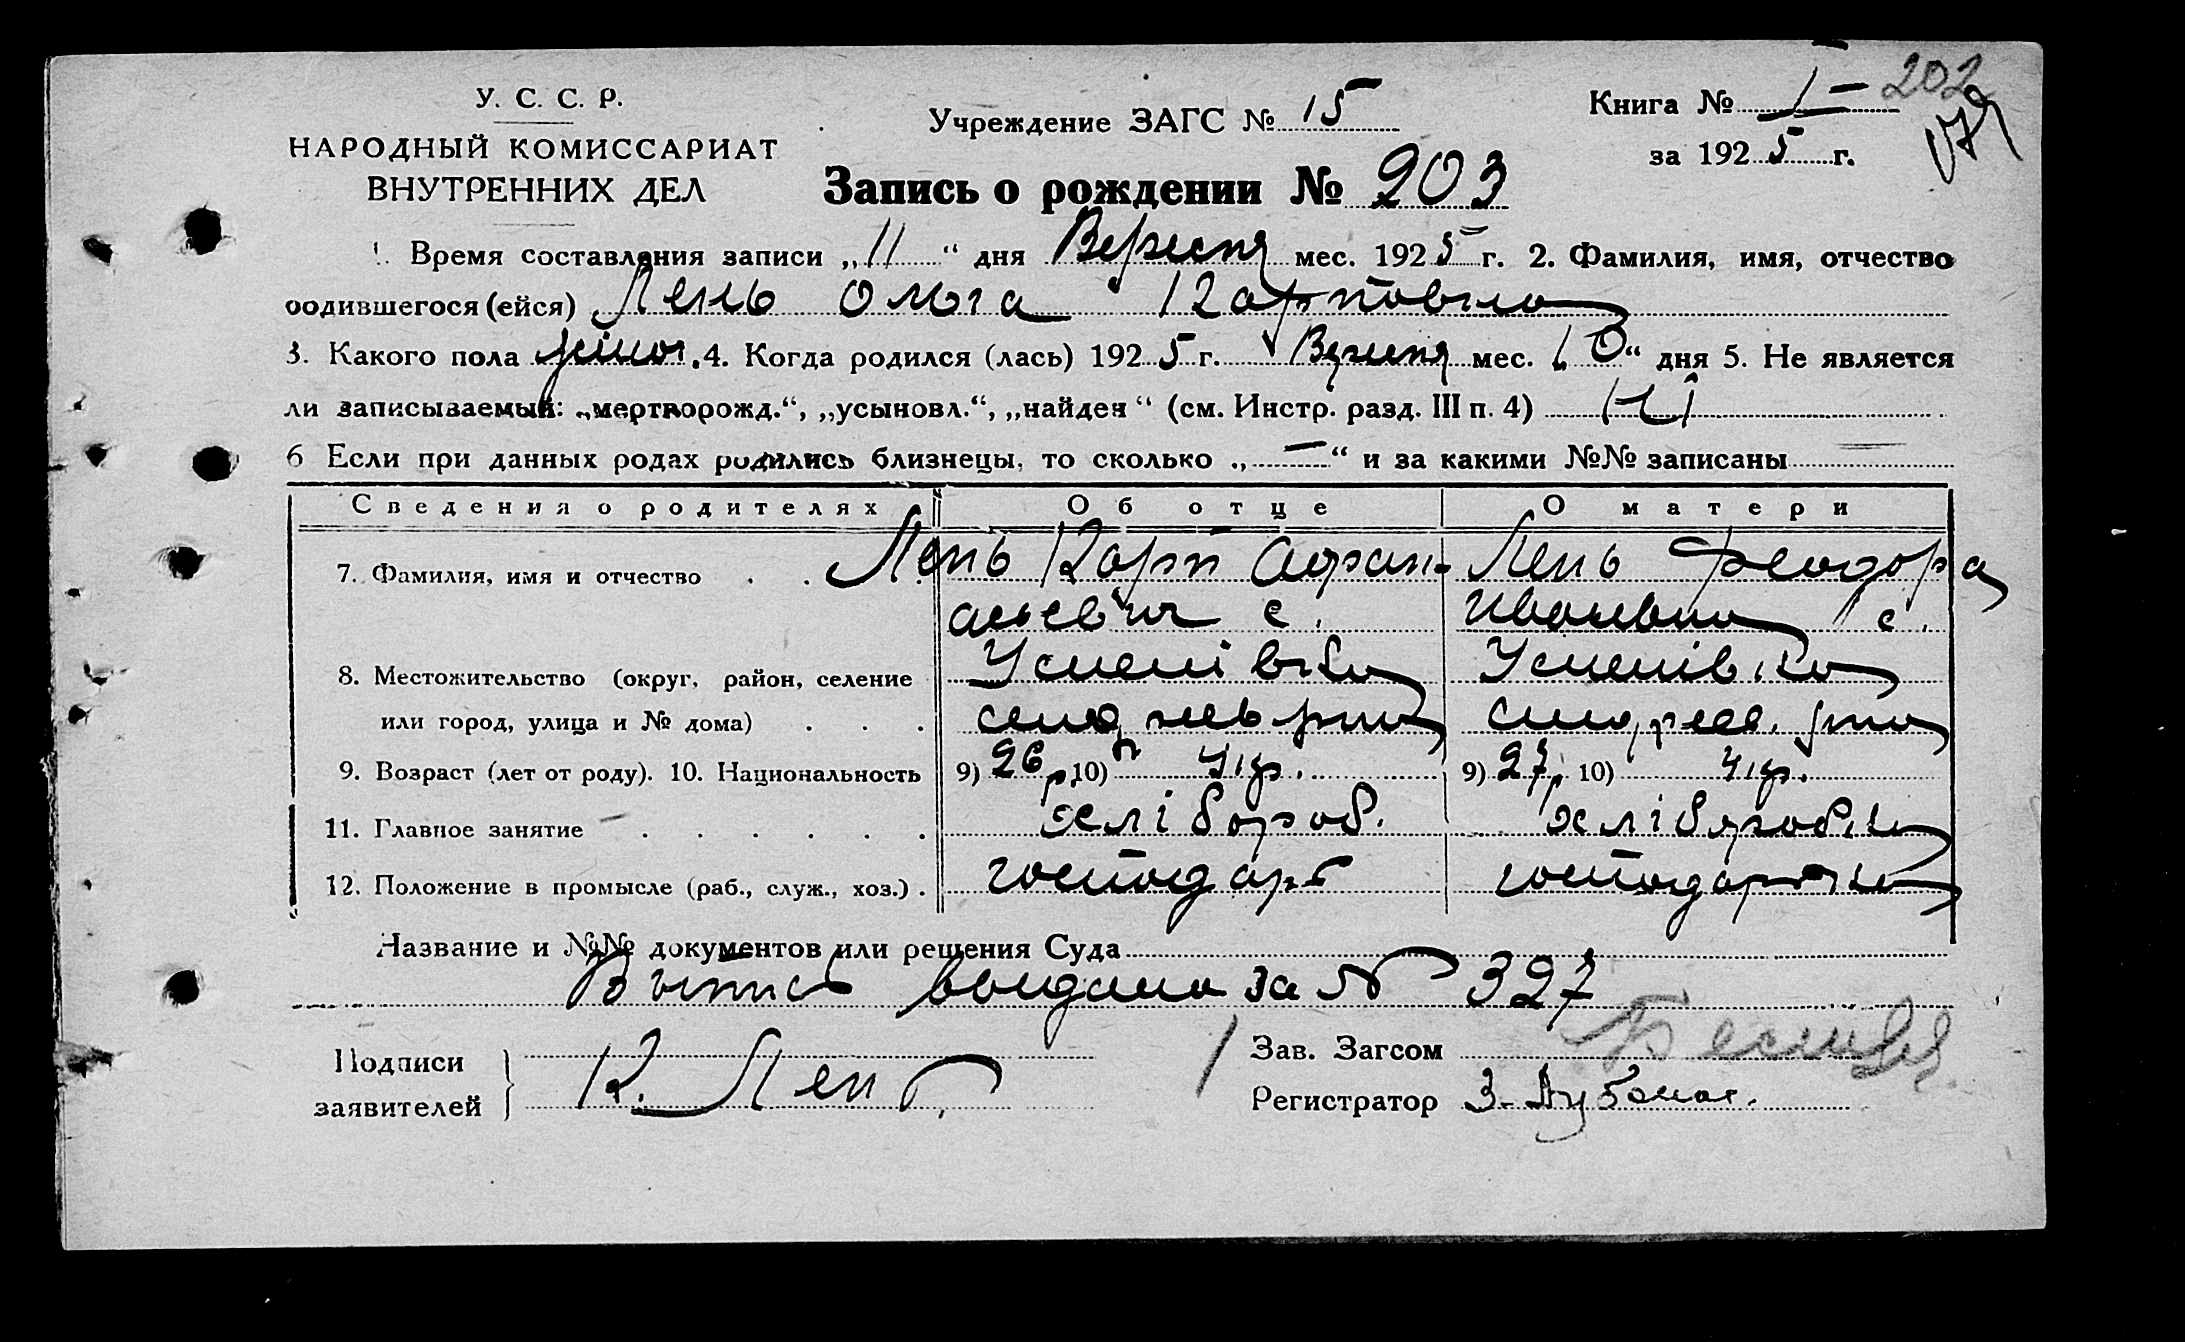 У. С. С. Р.
НАРОДНЫЙ КОМИССАРИАТ
ВНУТРЕННИХ ДЕЛ
Учреждение ЗАГС № 15
Книга № I – 202
за 1925 г.
179
Запись о рождении № 203
1. Время составления записи „11“ дня Вересня мес. 1925 г. 2. Фамилия, имя, отчество
родившегося (ейся) Лень Ольга Карповна
3. Какого пола жіноч. 4. Когда родился (лась) 1925 г. Вересня мес. 10“ дня 5. Не является
ли записываемый: „мертворожд.“, „усыновл.“, „найден“ (см. Инстр. разд. III п. 4) Ні
6 Если при данных родах родились близнецы, то сколько „—“ и за какими №№ записаны —
Сведения о родителях Об отце О матери
7. Фамилия, имя и отчество . . Лень Карп Афан- Лень Феодора
асьевич с. Ивановна с.
8. Местожительство (округ, район, селение Успенівка Успенівка
или город, улица и № дома) . . .
9. Возраст (лет от роду). 10. Национальность 9) 26 р. 10) Укр. 9) 27 р. 10) Укр.
11. Главное занятие . . . . . . хлібороб. хліборобка
12. Положение в промысле (раб., служ., хоз.) . господарь господарка
Название и №№ документов или решения Суда
Выпись выдана за № 327
Подписи
заявителей К. Лень
Зав. Загсом
Регистратор З.